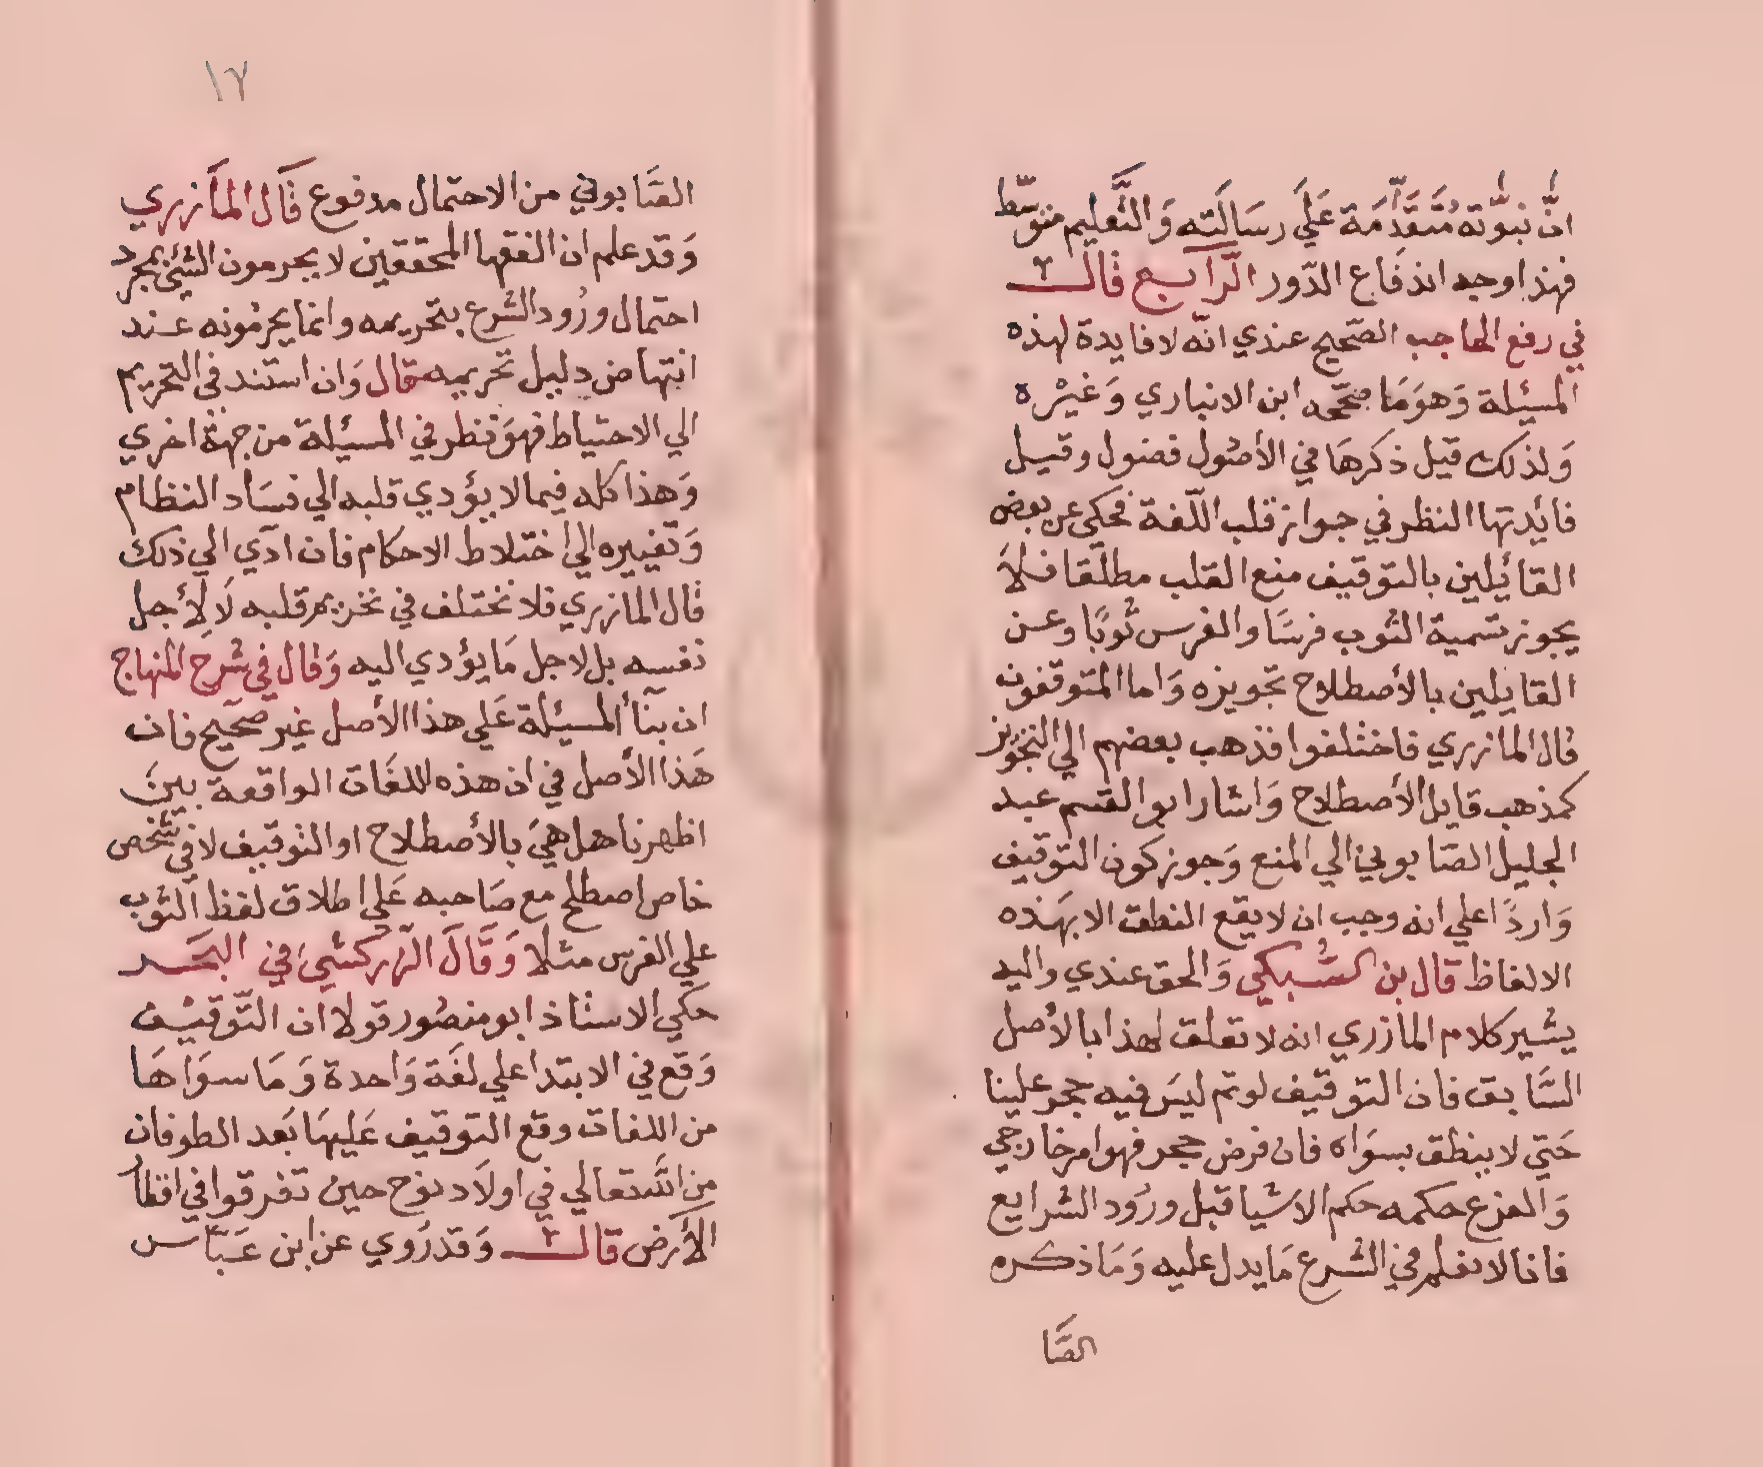 انّ نبوّته مُتَقَدِّمَة عَلَي رسَالَته وَالتَّعليم متوسّط
فهذا وجه اندفاع الدّور الرّابع قال
في رفع الحاجب الصّحيح عندي انّه لا فايدة لهذه
المسئلة وَهوَ مَا صحّحه ابن الانباري وَغيْره
وَلذلك قيل ذكرهَا في الأصُول فضول وقيل
فائدتها النظر في جواز قلب اللّغة فحكي عن بعض
القائلين بالتوقيف منع القلب مطلقا فلاَ
يجوز تسمية الثوب فرسَا والفرس ثوبًا وعن
القايلين بالأصطلاح تجويزه وَاما المتوقفون
قال المازري فاختلفوا فذهب بعضهم الي التجويز
كمذهب قايل الأصطلاح وَاشار ابو القسم عبد
الجليل الصّابوني الي المنع وَجوز كون التوقيف
وَاردًا علي انه وجب ان لا يقع النطق الا بهَذه
الالفاظ قال بن السُّبكي وَالحق عندي واليه
يشير كلام المازري انه لا تعلق لهذا بالأصل
السَّابق فان التوقيف لو تم ليسَ فيه حجر علينا
حَتي لا ينطق بسوَاه فان فرض حجر فهو امر خارجي
وَالفرع حكمه حكم الاشيا قبل ورُود الشرايع
فانا لا نعلم في الشرع مَا يدل عليه وَمَا ذكره
الصَّا
١٧
الصَّابوني من الاحتمال مدفوع قَال المَازري
وَقد علم ان الفقها المحققين لا يحرمون الشئ بمجرد
احتمال ورُود الشرع بتحريمه وانما يحرمُونه عند
انتهاض دليل تحريمه قال وَان استند في التحريم
الي الاحتياط فهوَ نظر في المسئلة من جهة اخري
وَهذا كله فيما لا يؤدي قلبه الي فسَاد النظام
وَتغييره الي اختلاط الاحكام فان ادّي الي ذلك
قال المازري فلا نختلف في تحريم قلبه لاَ لأجل
نفسه بل لاجل مَا يؤدي اليه وَقال في شرح المنهاج
ان بنَآ المسئلة عَلي هذا الأصل غير صحيح فان
هَذا الأصل في ان هذه اللغَات الواقعة بينَ
اظهرنا هل هيَ بالأصطلاح او التوقيف لا في شخص
خاص اصطلح مع صَاحبه عَلي اطلاق لفظ الثوب
علي الفرس مثلًا وَقَالَ الزّركشي في البحَر
حكي الاستاذ ابو منصُور قولا ان التَّوقيف
وَقع في الابتدا علي لغَة وَاحدة وَمَا سوَاهَا
من اللغات وقع التوقيف عَليهَا بَعد الطوفان
من اللّه تعالي في اولَاد نوح حين تفرقوا في اقطار
الأرض قال وَقد رُوي عن ابن عَبَّاس